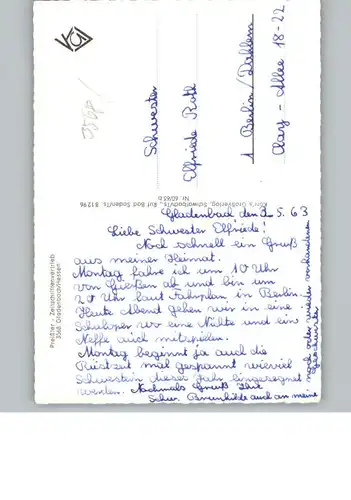 Schwester
Elfriede Roth
1 Berlin/Dahlem
Clay-Allee 18-22
Schwalbach/Ts., Ruf Bad Soden/Ts. 81296
Nr. 60/63 b
Preißler - Zeitschriftenvertrieb
3568 Gladenbach/Hessen
Gladenbach den 2.5.63
Liebe Schwester Elfriede!
Noch schnell ein Gruß
aus meiner Heimat.
Montag fahre ich um 10 Uhr
von Gießen ab und bin um
20 Uhr laut Fahrplan in Berlin.
Heute Abend gehen wir in eine
Schuloper wo eine Nichte und ein
Neffe auch mitspielen.
Montag beginnt ja auch die
Rüstzeit mal gespannt wieviel
Schwestern dieses Jahr eingesegnet
werden. Nochmals Gruß Ihre
Schw. Brunhilde auch an meine
noch oder wieder vorhandenen